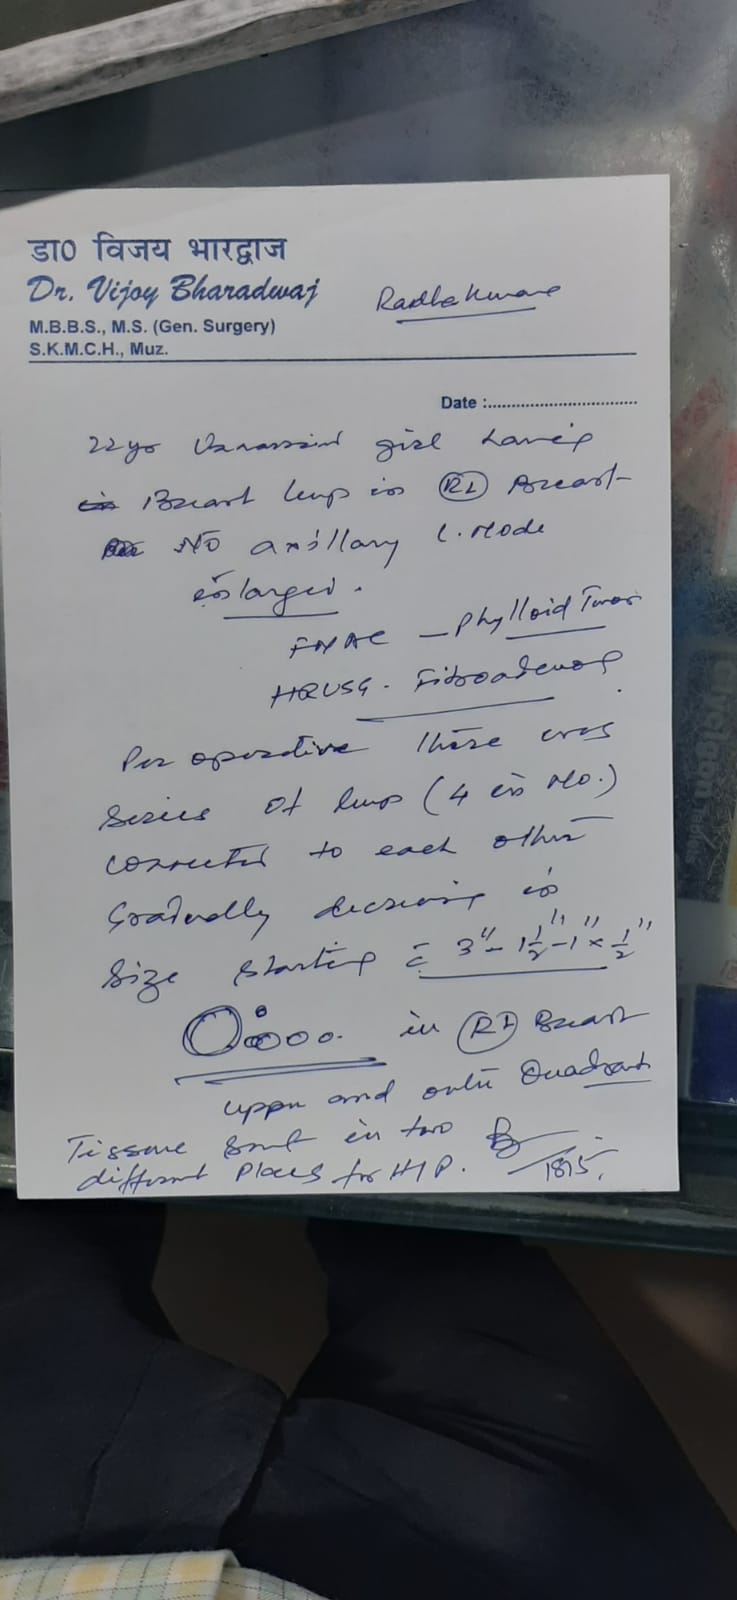 डा० विजय भारद्वाज
Dr. Vijoy Bharadwaj
M.B.B.S., M.S. (Gen. Surgery)
S.K.M.C.H., Muz.
Radha
Date :
22 yr Unmarried girl having
Breast lump in (Rt) Breast
No axillary L. Node
enlarged.
FNAC – Phylloid Tumor
HRUSG - Fibroadenoma
Per operative there was
series of lump (4 in No.)
connected to each other
Gradually decreasing in
size starting c̄ 3" – 1 1/2" – 1" × 1/2"
in (Rt) Breast
upper and outer Quadrant
Tissue sent in two
different places for H/P.
18/5.
Tablets